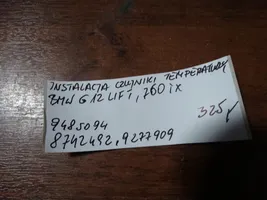 INSTALACJA CZUJNIKI TEMPERATURY
BMW G12 LIFT, 760 iX
325,-
9485094
8742492, 9277909